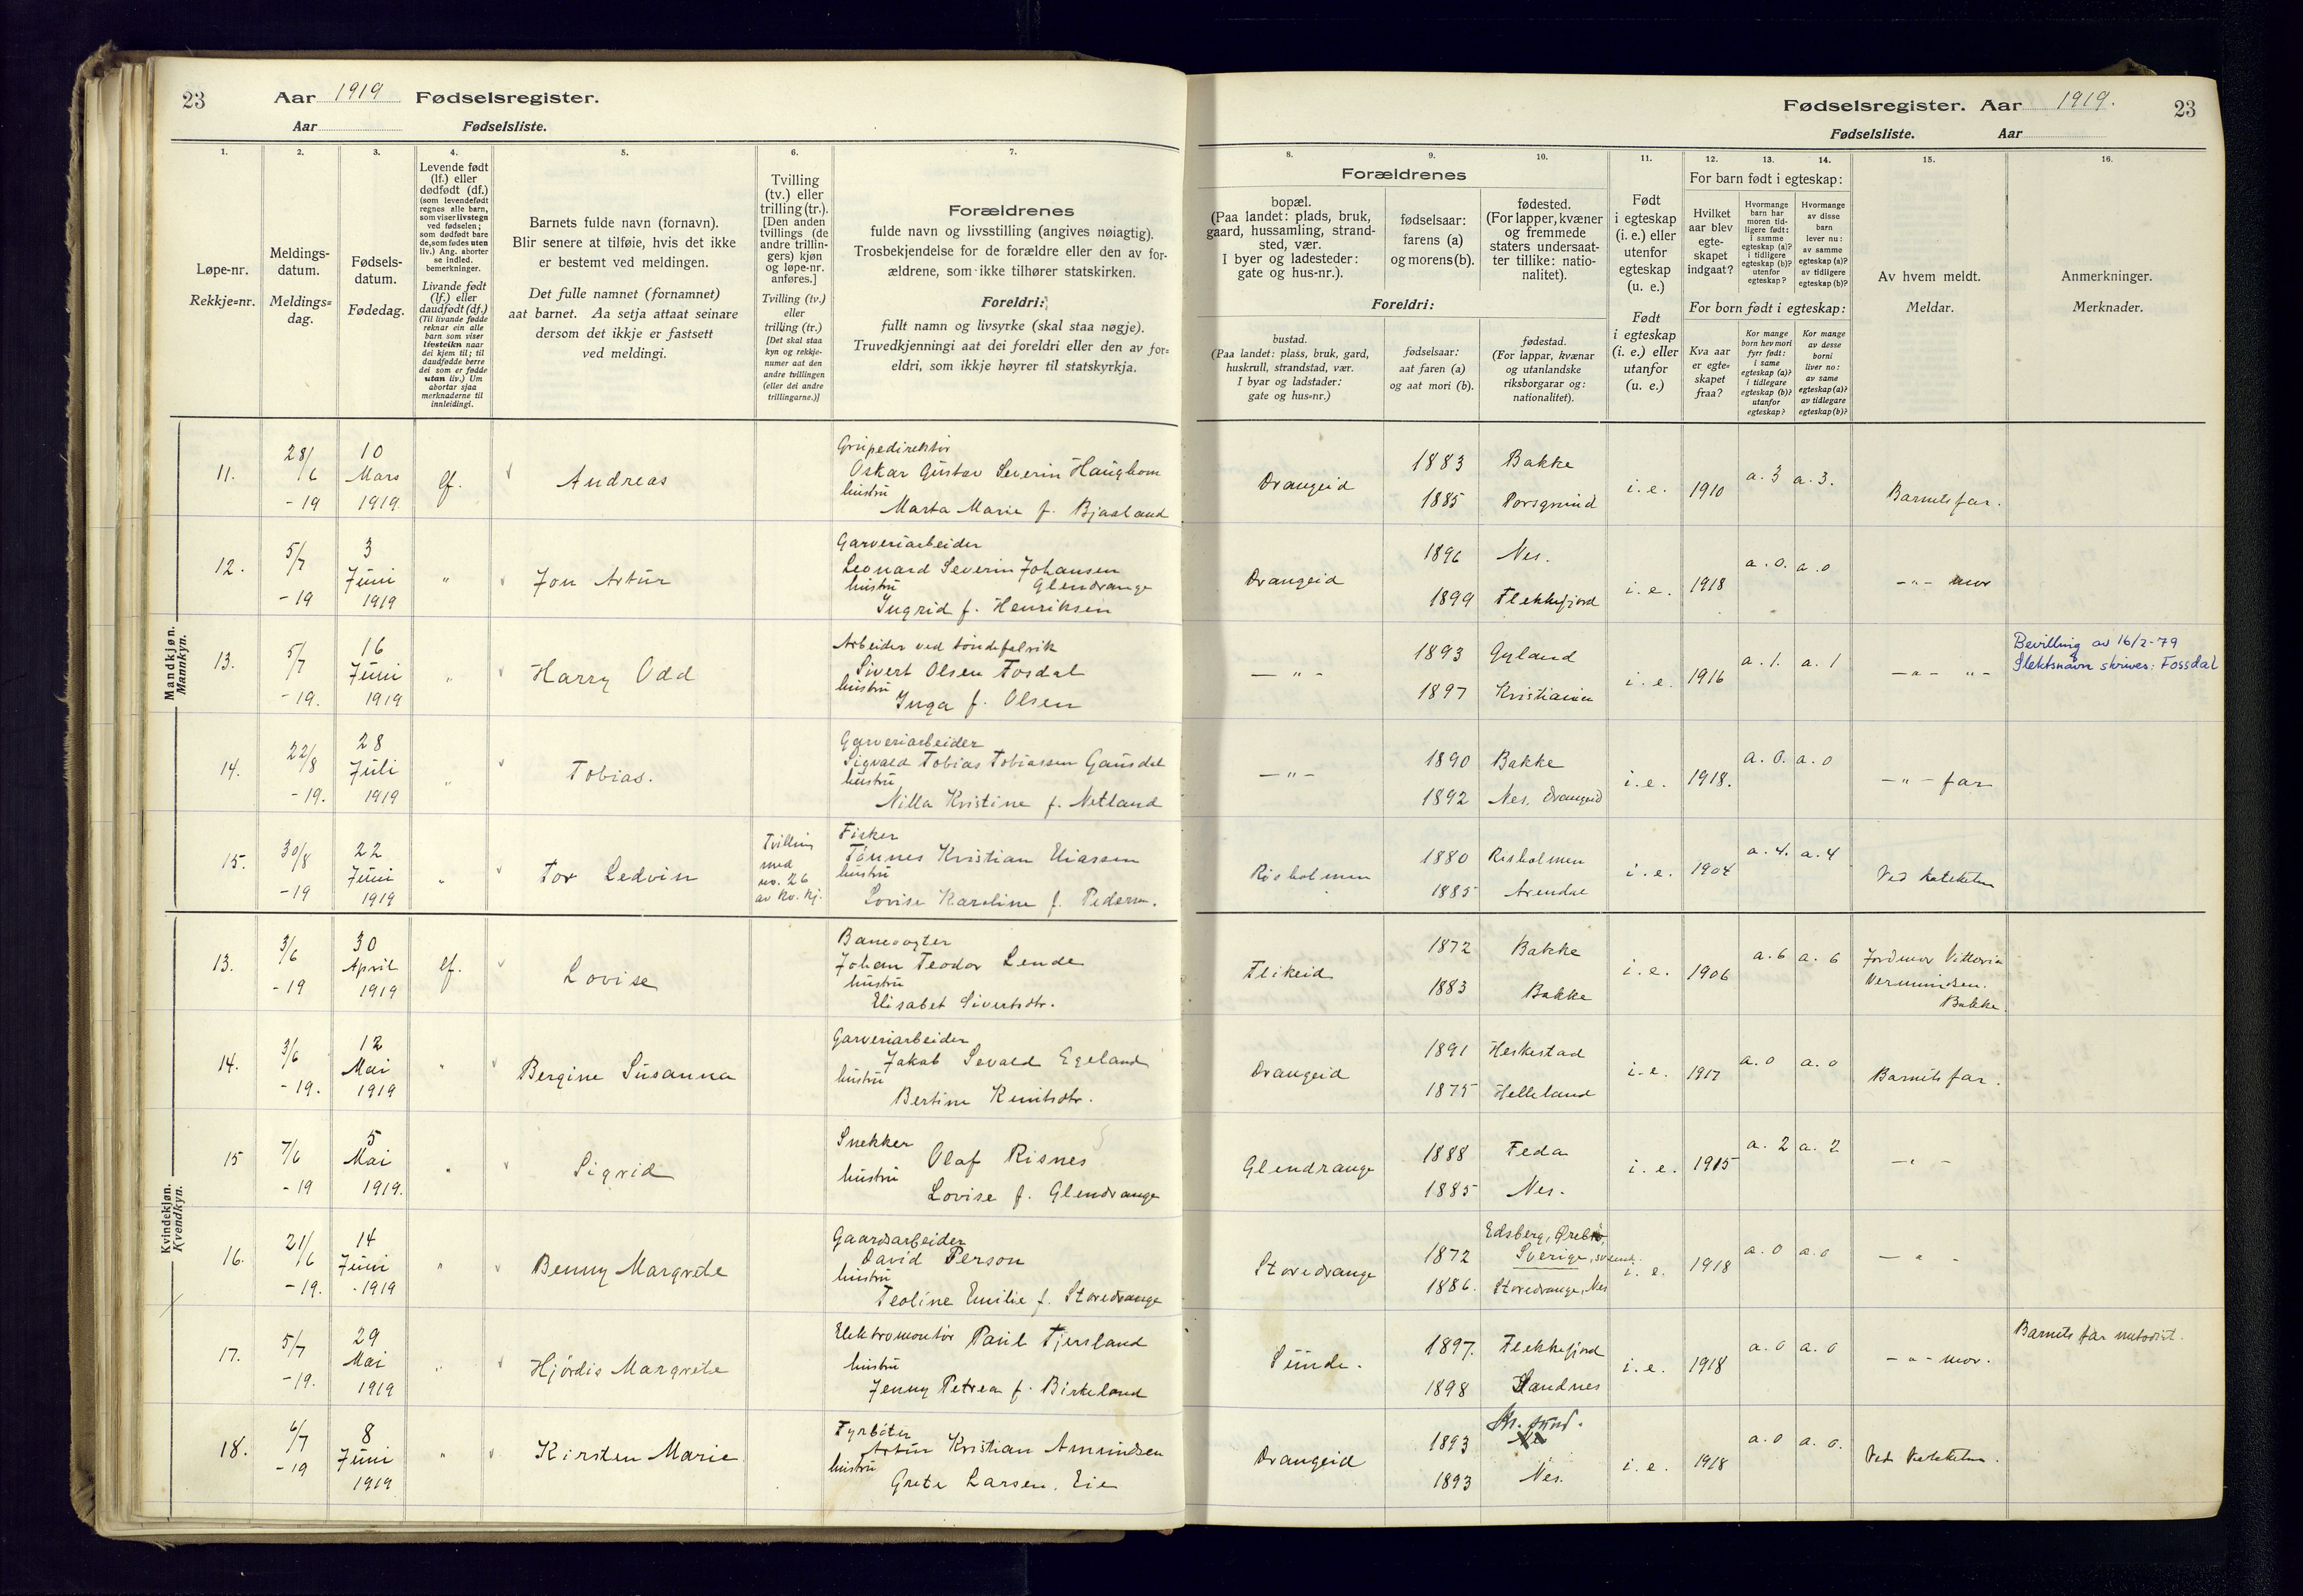 23 Aar 1919 Fødselsregister.
Aar Fødselsliste.
1. 2. 3. 4. 5. 6. 7.
Løpe-nr.
Rekkje=nr.
Meldings-
datum.
Meldings=
dag.
Fødsels-
datum.
Fødedag.
Levende født
(lf.) eller
dødfødt (df.)
(som levendefødt
regnes alle barn,
som viser livstegn
ved fødselen;
som dødfødt bare
de, som fødes uten
liv.) Ang. aborter
se indled.
bemerkninger.
Livande født
(lf.) eller
daudfødt (df.)
(Til livande fødde
reknar ein alle
barn som viser
livsteikn naar
dei kjem til; til
daudfødde berre
dei som er fødde
utan liv.) Um
abortar sjaa
merknaderne til
innleidingi.
Barnets fulde navn (fornavn).
Blir senere at tilføie, hvis det ikke
er bestemt ved meldingen.
Det fulle namnet (fornamnet)
aat barnet. Aa setja attaat seinare
dersom det ikkje er fastsett
ved meldingi.
Tvilling
(tv.) eller
trilling (tr.).
[Den anden
tvillings (de
andre trillin-
gers) kjøn
og løpe-nr.
anføres.]
Tvilling (tv.)
eller
trilling (tr.)
[Det skal staa
kyn og rekkje-
numer aat den
andre tvillingen
(eller dei andre
trillingarne.)]
Forældrenes
fulde navn og livsstilling (angives nøiagtig).
Trosbekjendelse for de forældre eller den av for-
ældrene, som ikke tilhører statskirken.
Foreldri:
fullt namn og livsyrke (skal staa nøgje).
Truvedkjenningi aat dei foreldri eller den av for=
eldri, som ikkje høyrer til statskyrkja.
Mandkjøn.
Mannkyn.
11. 28/6 -19 10 Mars 1919 lf. Andreas
Oskar Gustav Severin Haughom
hustru
Marta Marie f. Bjaaland
12. 5/7 -19 3 Juni 1919 " Jon Artur
Garveriarbeider
Leonard Severin Johansen
hustru Glendrange
Ingrid f. Henriksen
13. 5/7 -19. 16 Juni 1919 " Harry Odd
Arbeider ved tøndefabrik
Sivert Olsen Fosdal
hustru
Inga f. Olsen
14. 22/8 -19. 28 Juli 1919 " Tobias.
Garveriarbeider
Sigvald Tobias Tobiassen Gausdal
hustru
Nilla Kristine f. Netland
15. 30/8 -19 22 Juni 1919 " Tor Ledvin
Tvilling
med
no. 26
av kv. kj.
Fisker
Tønnes Kristian Eliassen
hustru
Lovise Karoline f. Pedersen.
Kvindekjøn.
Kvendkyn.
13. 3/6 -19 30 April 1919 lf. Lovise
Banevogter
Johan Teodor Lende
hustru
Elisabet Sivertsdtr.
14. 3/6 -19. 12 Mai 1919 " Bergine Susanna
Garveriarbeider
Jakob Sevald Egeland
hustru
Bertine Knutsdtr.
15 7/6 -19 5 Mai 1919. " Sigrid
Snekker
Olaf Risnes
hustru
Lovise f. Glendrange
16. 21/6 -19. 14 Juni 1919 " Benny Margrete
Gaardsarbeider
David Person
hustru
Teoline Emilie f. Storedrange
17. 5/7 -19. 29 Mai 1919 " Hjördis Margrete
Elektromontör Paul Tjersland
hustru
Jenny Petrea f. Birkeland
18. 6/7 -19 8 Juni 1919 " Kirsten Marie
Fyrbøter
Artur Kristian Amundsen
hustru
Grete Larsen. Eie
Fødselsregister. Aar 1919. 23
Fødselsliste. Aar
8. 9. 10. 11. 12. 13. 14. 15. 16.
Forældrenes
bopæl.
(Paa landet: plads, bruk,
gaard, hussamling, strand-
sted, vær.
I byer og ladesteder:
gate og hus-nr.).
fødselsaar:
farens (a)
og morens (b).
fødested.
(For lapper, kvæner
og fremmede
staters undersaat-
ter tillike: natio-
nalitet).
Foreldri:
bustad.
(Paa landet: plass, bruk, gard,
huskrull, strandstad, vær.
I byar og ladstader:
gate og hus=nr.)
fødselsaar:
aat faren (a)
og aat mori (b).
fødestad.
(For lappar, kvænar
og utanlandske
riksborgarar og:
nationalitet).
Født
i egteskap
(i. e.) eller
utenfor
egteskap
(u. e.)
Født
i egteskap
(i. e.) eller
utanfor
(u. e.)
For barn født i egteskap:
Hvilket
aar blev
egte-
skapet
indgaat?
Hvormange
barn har
moren tid-
ligere født:
i samme
egteskap (a)?
i tidligere
egteskap (b)?
utenfor
egteskap?
Hvormange
av disse
barn
lever nu:
av samme
egteskap (a)?
av tidligere
egteskap (b)?
For born født i egteskap:
Kva aar
er egte=
skapet
fraa?
Kor mange
born hev mori
fyrr født:
i same
egteskap (a)?
i tidlegare
egteskap (b)?
utanfor
egteskap?
Kor mange
av desse
borni
liver no:
av same
egteskap (a)?
av tidlegare
egteskap (b)?
Av hvem meldt.
Meldar.
Anmerkninger.
Merknader.
Drangeid 1883 Bakke
1885 Porsgrund i. e. 1910 a. 3 a. 3. Barnets far.
Drangeid 1896 Nes.
1899 Flekkefjord i. e. 1918 a. 0. a. 0 -"- mor
-"- 1893 Gyland
1897 Kristiania i. e. 1916 a. 1. a. 1 -"- "-
Bevilling av 16/2-79
Slektsnavn skrives: Fossdal
-"- 1890 Bakke
1892 Nes, Drangeid i. e. 1918. a. 0. a. 0 -"- far
Risholmen 1880 Risholmen
1885 Arendal i. e. 1904 a. 4. a. 4 Ved kateketen
Flikeid 1872 Bakke
1883 Bakke i. e. 1906 a. 6 a. 6 Jordmor Viktoria
Bakke.
Drangeid 1891 Heskestad
1875 Helleland i. e. 1917 a. 0 a. 0 Barnets far.
Glendrange 1888 Feda
1885 Nes. i. e. 1915 a. 2 a. 2 -"-
Storedrange 1872 Edsberg, Ørebro,
Sverige, svensk.
1886. Storedrange, Nes i. e. 1918 a. 0 a. 0 -"-
Sunde. 1897. Flekkefjord
1898 Sandnes i. e. 1918 a. 0 a. 0 -"- mor. Barnets far metodist.
Drangeid 1893 Kr. sund.
1893 Nes. i. e. 1918 a. 0 a. 0. Ved kateketen.